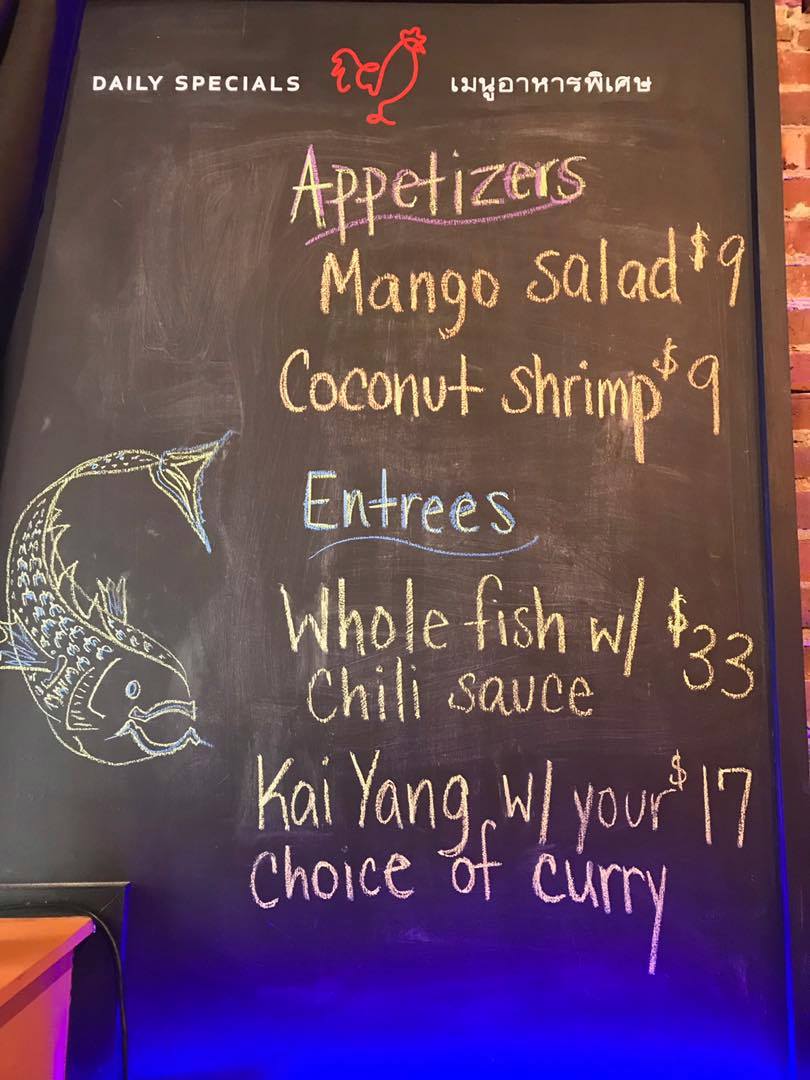 DAILY SPECIALS เมนูอาหารพิเศษ
Appetizers
Mango salad $9
Coconut shrimp $9
Entrees
Whole fish w/ $33
Chili sauce
Kai Yang w/ your $17
Choice of curry